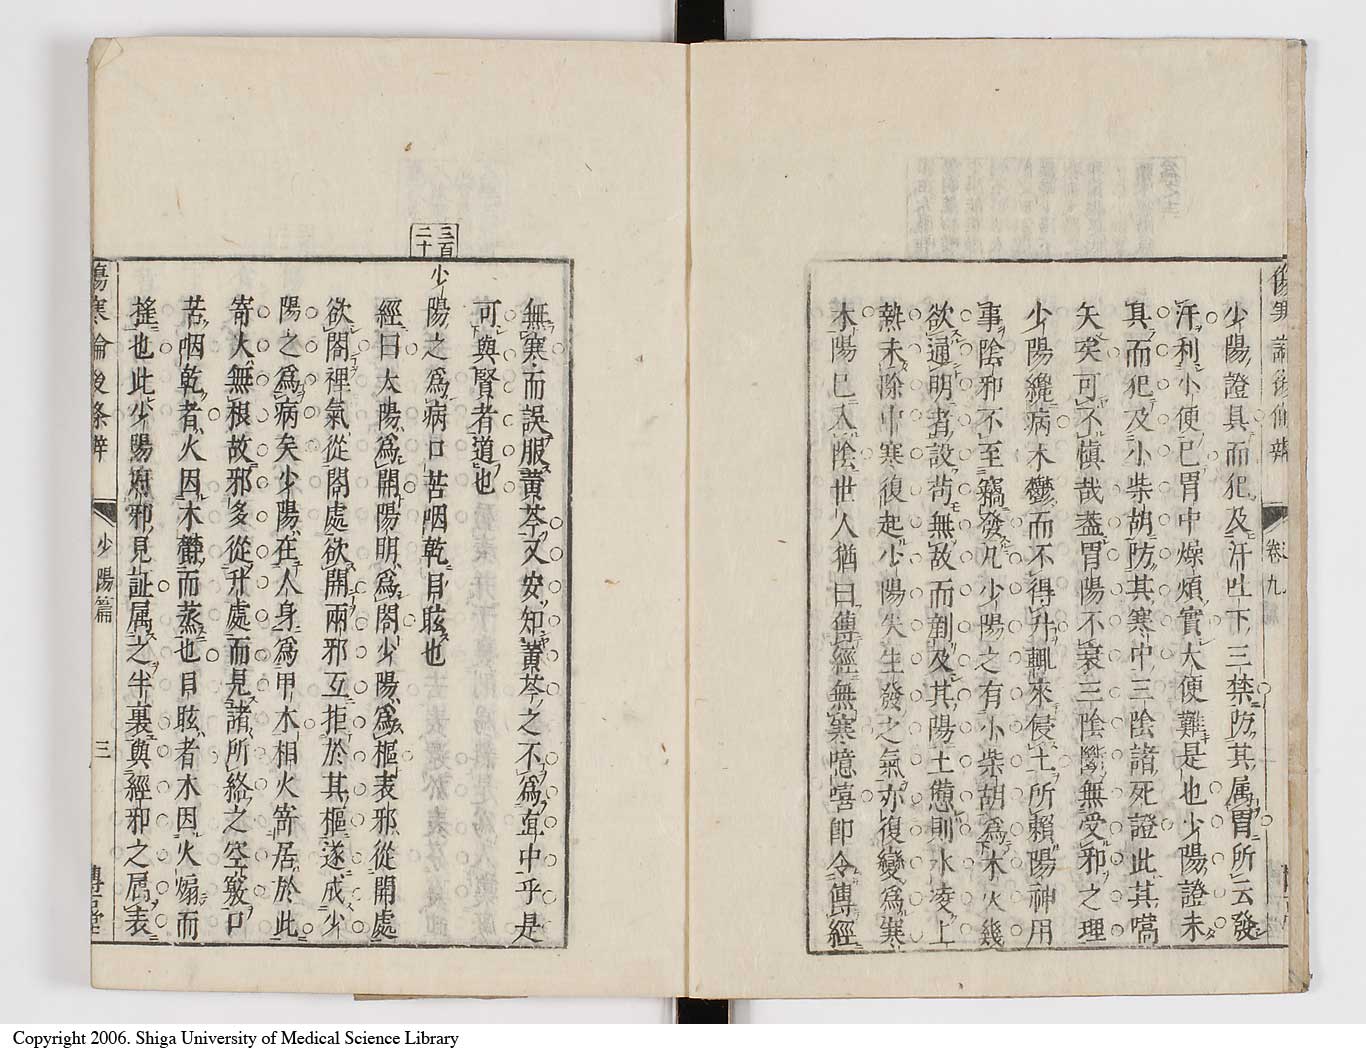 傷寒論後條辨
卷九
少陽證具而犯及汗吐下三禁防其属胃所云發
汗利小便已胃中燥煩實大便難是也少陽證未
具而犯及小柴胡防其寒中三陰諸死證此其嚆
矢矣可不慎哉蓋胃陽不衰三陰斷無受邪之理
少陽纔病木鬱而不得升輙來侵土所賴陽神用
事陰邪不至竊發凡少陽之有小柴胡為木火幾
欲通明者設苟無故而剷及其陽土憊則水凌上
熱未除中寒復起少陽失生發之氣亦復變為寒
木陽已入陰世人猶曰傳經無寒噫嘻即令傳經
無寒而誤服黄芩又安知黄芩之不為直中乎是
可與賢者道也
三百二十
少陽之為病口苦咽乾目眩也
經曰太陽為開陽明為閤少陽為樞表邪從開處
欲閤裡氣從閤處欲開兩邪互拒於其樞遂成少
陽之為病矣少陽在人身為甲木相火寄居於此
寄火無根故邪多從升處而見諸所絡之空竅口
苦咽乾者火因木鬱而蒸也目眩者木因火煽而
搖也此少陽府邪見証属之半裏與經邪之属表
傷寒論後條辨
少陽篇
三